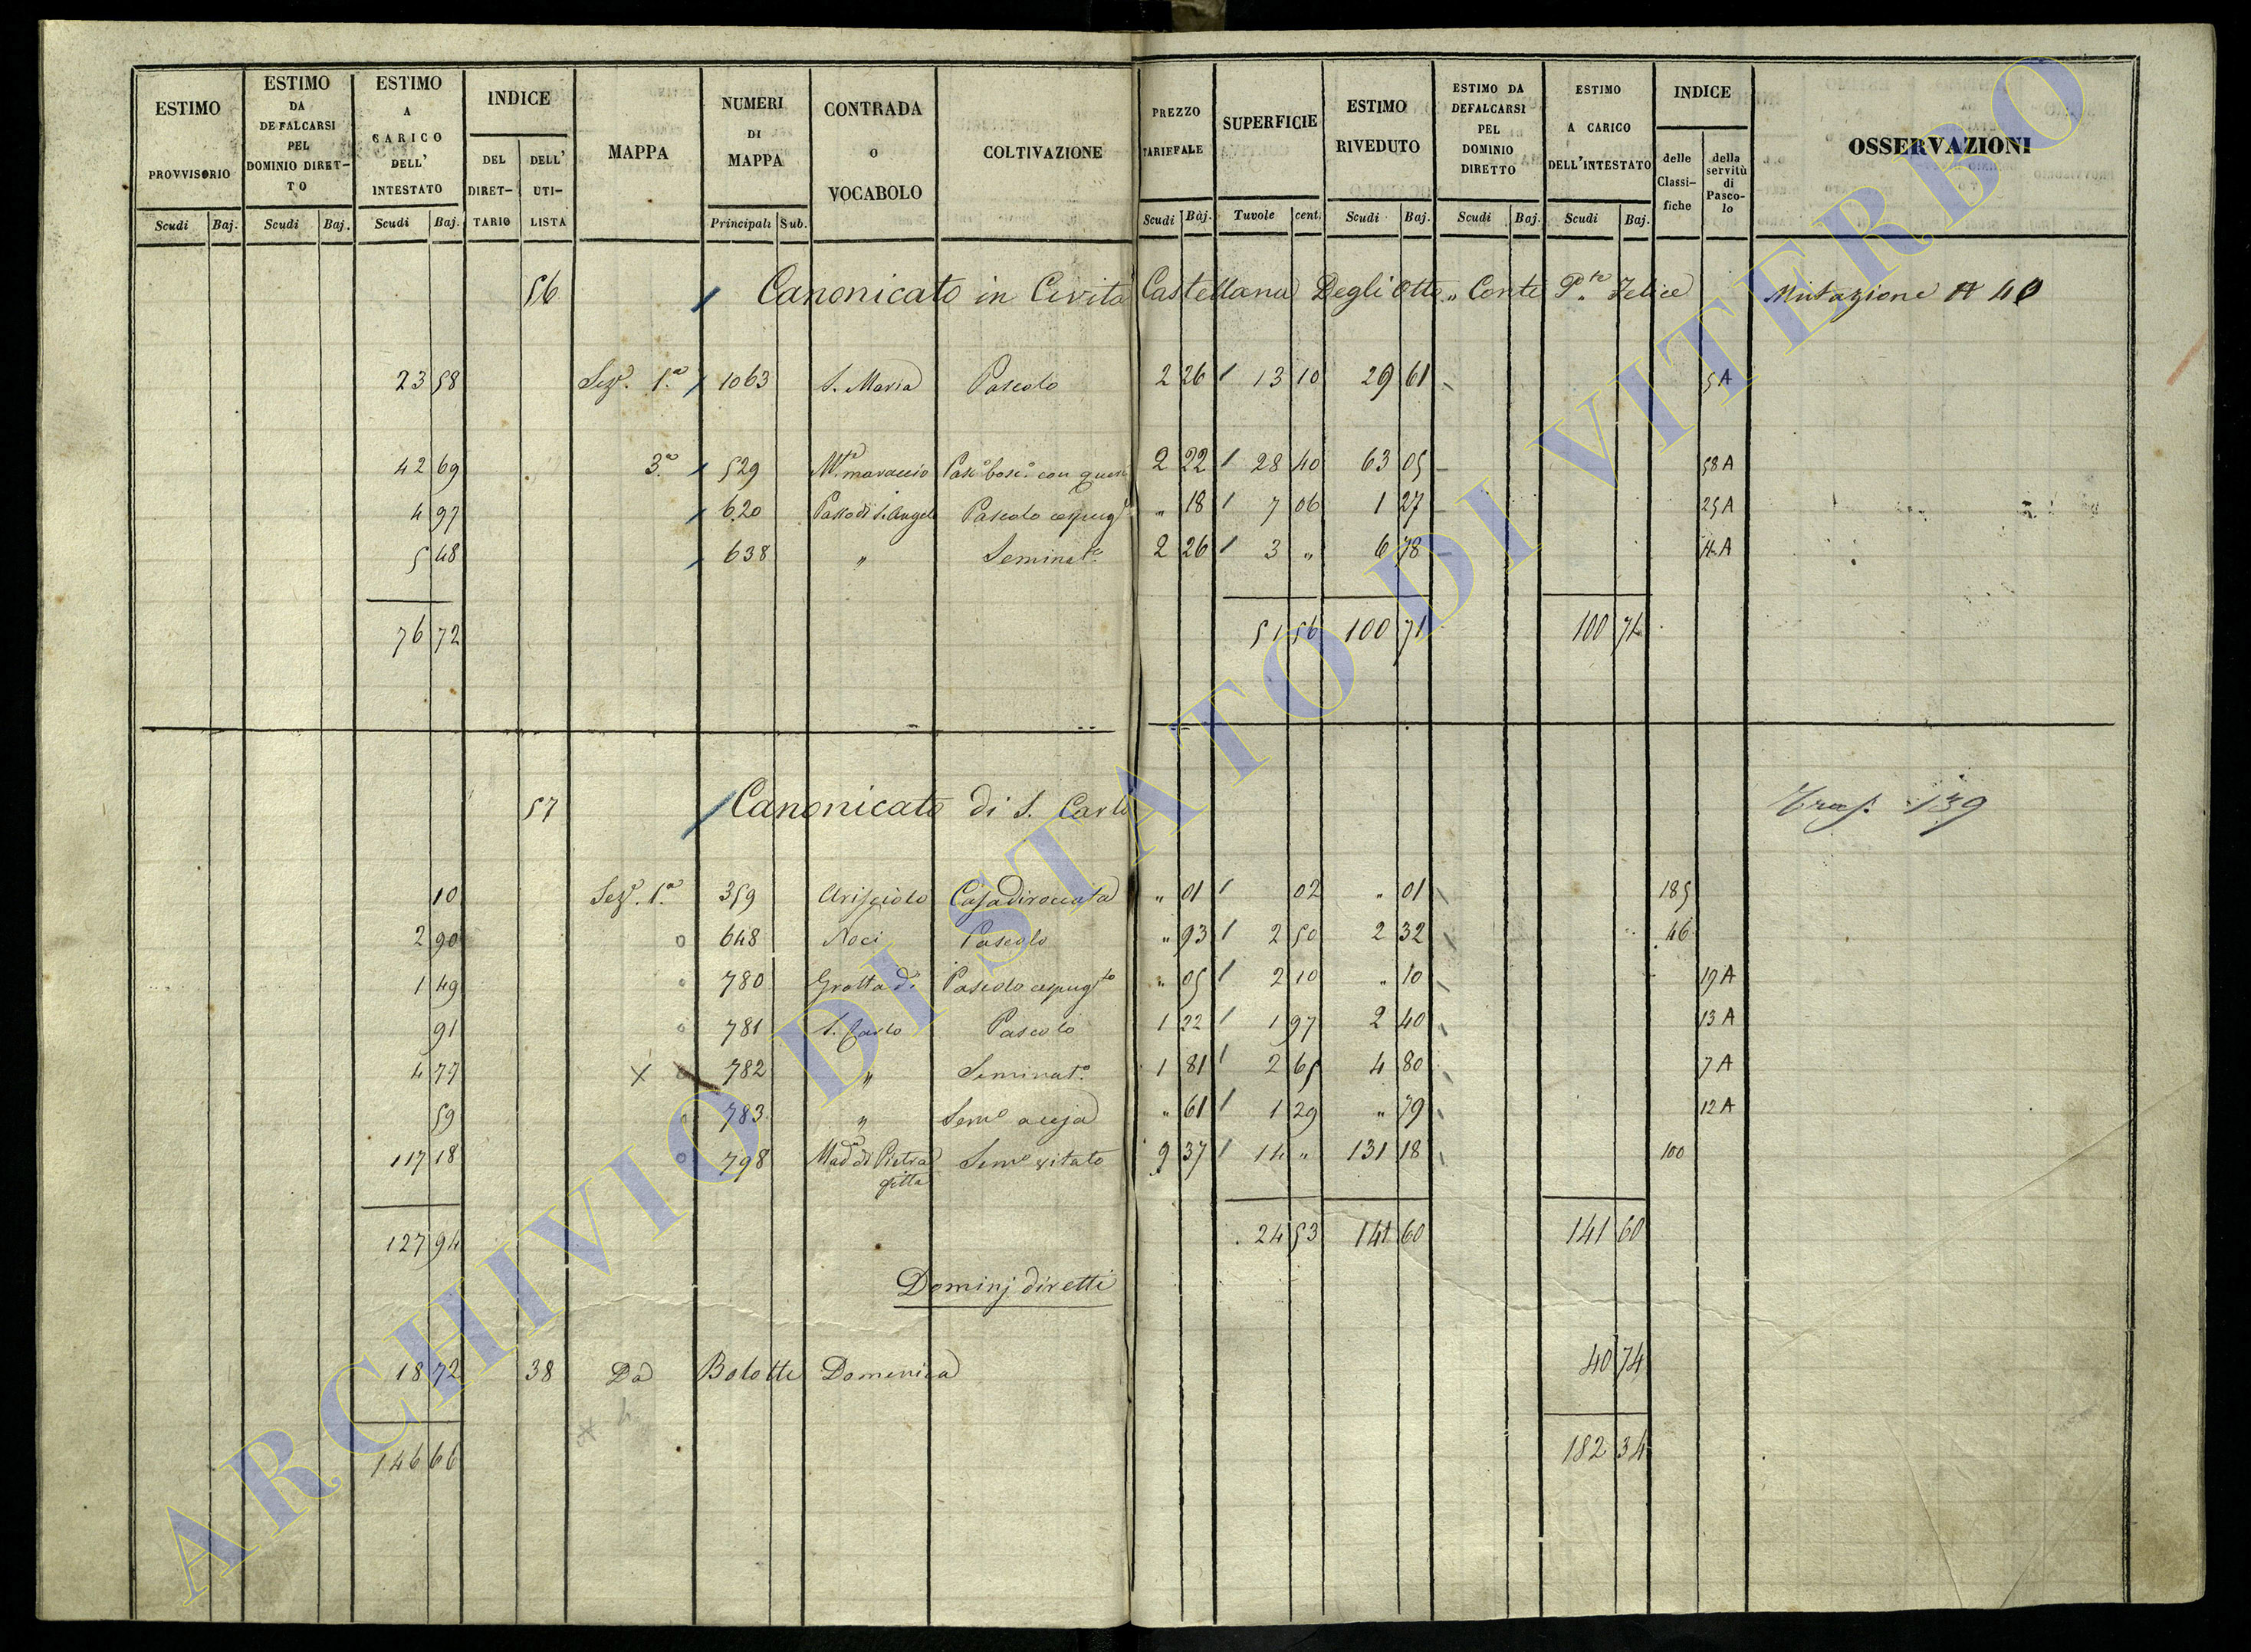 ESTIMO PROVVISORIO Scudi Baj.
ESTIMO DA DEFALCARSI PEL DOMINIO DIRET-TO Scudi Baj.
ESTIMO A CARICO DELL' INTESTATO Scudi Baj.
INDICE DEL DIRET-TARIO DELL' UTI-LISTA
MAPPA
NUMERI DI MAPPA Principali Sub.
CONTRADA o VOCABOLO
COLTIVAZIONE
PREZZO TARIFFALE Scudi Baj.
SUPERFICIE Tuvole cent.
ESTIMO RIVEDUTO Scudi Baj.
ESTIMO DA DEFALCARSI PEL DOMINIO DIRETTO Scudi Baj.
ESTIMO A CARICO DELL'INTESTATO Scudi Baj.
INDICE delle Classi-fiche della servitù di Pasco-lo
OSSERVAZIONI
56 Canonicato in Civita Castellana Degli Otto „ Conti Felice Mutazione 40
23 58 Sez.e 1.a 1063 S. Maria Pascolo 2 26 13 10 29 61 5A
42 69 3.a 529 Pasc.o bosc.o con 2 22 28 40 63 05 58A
4 97 620 Passo di S. Angelo Pascolo cespug.to „ 18 7 06 1 27 25A
5 48 638 „ Seminat.o 2 26 3 „ 6 78 14A
76 72 51 56 100 71 100 71
57 Canonicato di S. Carlo Trasp. 139
10 Sez.e 1.a 359 Casa diroccata „ 01 02 „ 01 185
2 90 648 Noci Pascolo „ 93 2 50 2 32 46
1 49 780 Grotta di Pascolo cespug.to „ 05 2 10 „ 10 19A
91 781 S. Carlo Pascolo 1 22 1 97 2 40 13A
4 77 782 „ Seminat.o 1 81 2 65 4 80 7A
59 783 „ Sem.o „ 61 1 29 „ 79 12A
117 18 798 Mad.a di Pietra Sem.o vitato 9 37 14 „ 131 18 100
gitta
127 94 24 53 141 60 141 60
Dominj diretti
18 72 38 Da Bolotti Domenica 40 74
146 66 182 34
ARCHIVIO DI STATO DI VITERBO